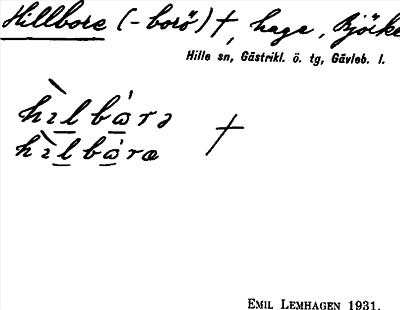 Hillbore (-borö) †, hage, Björke
Hille sn, Gästrikl. ö. tg, Gävleb. l.
hìlbárə †
hìlbáræ
EMIL LEMHAGEN 1931.